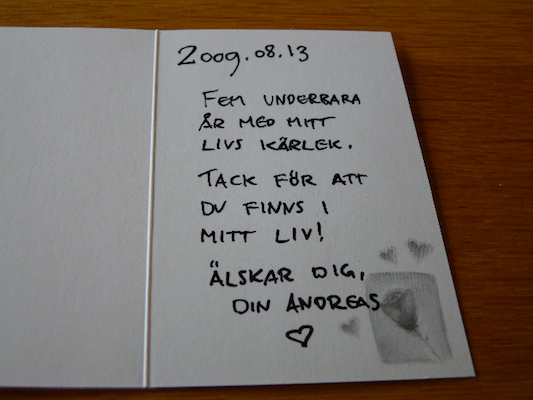 2009.08.13
FEM UNDERBARA
ÅR MED MITT
LIVS KÄRLEK.
TACK FÖR ATT
DU FINNS I
MITT LIV!
ÄLSKAR DIG,
DIN ANDREAS